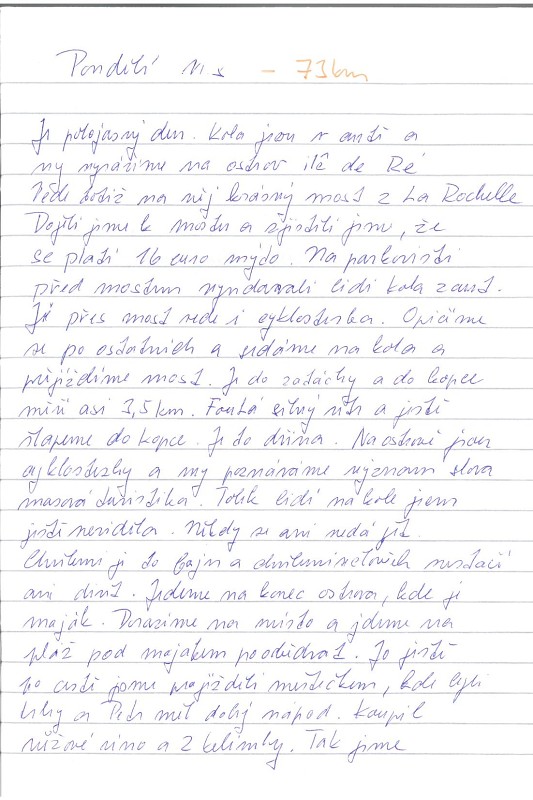 Pondělí 11.5 - 73km
Je polojasný den. Kola jsou v autě a
my vyrážíme na ostrov ilê de Ré
Vede totiž na něj krásný most z La Rochelle
Dojeli jsme k mostu a zjistili jsme, že
se platí 16 euro mýdo. Na parkovišti
před mostem vyndavali lidi kola z aut.
Jé přes most vede i cyklostezka. Opičíme
se po ostatních a sedáme na kola a
přijíždíme most. Je do zatáčky a do kopce
měří asi 3,5 km. Fouká silný vítr a ještě
šlapeme do kopce. Je to dřina. Na ostrově jsou
cyklostezky a my poznáváme význam slova
masová turistika. Tolik lidí na kole jsem
ještě neviděla. Někdy se ani nedá jet.
Chvílemi je to fajn a chvílemi
ani dost. Jedeme na konec ostrova, kde je
maják. Dorazíme na místo a jdeme na
pláž pod majákem poobědvat. Jo ještě
po cestě jsme projížděli městečkem, kde byli
trhy a Petr měl dobrý nápad. Koupil
růžové víno a 2 kelímky. Tak jsme